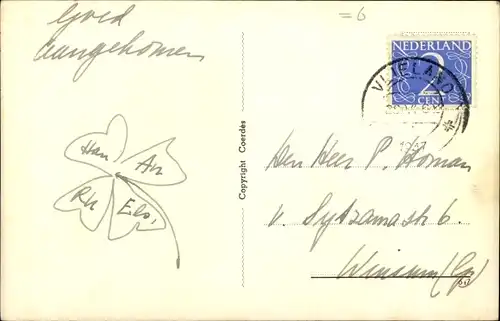 Goed
aangekomen
=6
NEDERLAND
2
CENT
VLIELAND
Han
An
Rh
Els,
Copyright Coerdès
Den Heer P. Homan
v. Sytzamastr 6.
Winsum (Gr)